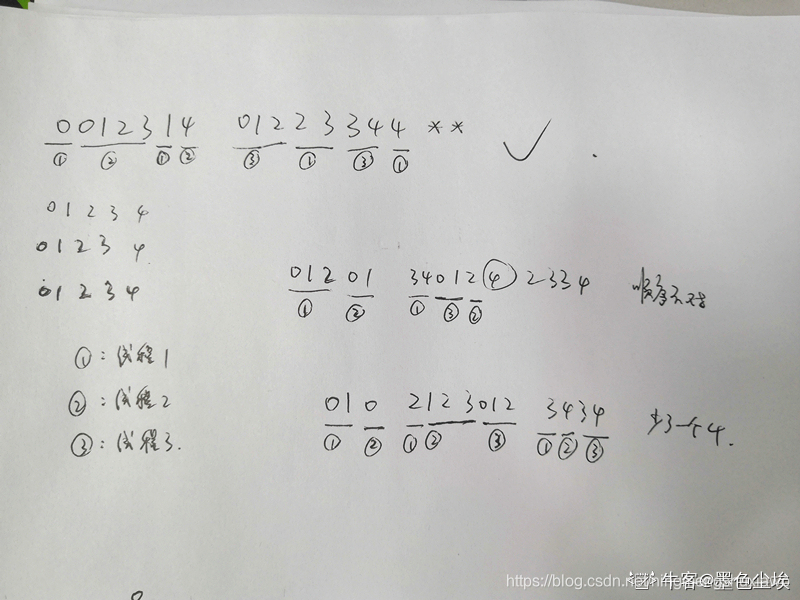 0012314 01223344 **
① ② ① ② ③ ① ③ ①
01234
01234
01234
01201 34012④2334 顺序不对
① ② ① ③ ②
①:线程1
②:线程2
③:线程3.
010 2123012 3434 少一个4.
① ② ① ② ③ ① ② ③
https://blog.csdn.net/
牛客@墨色尘埃